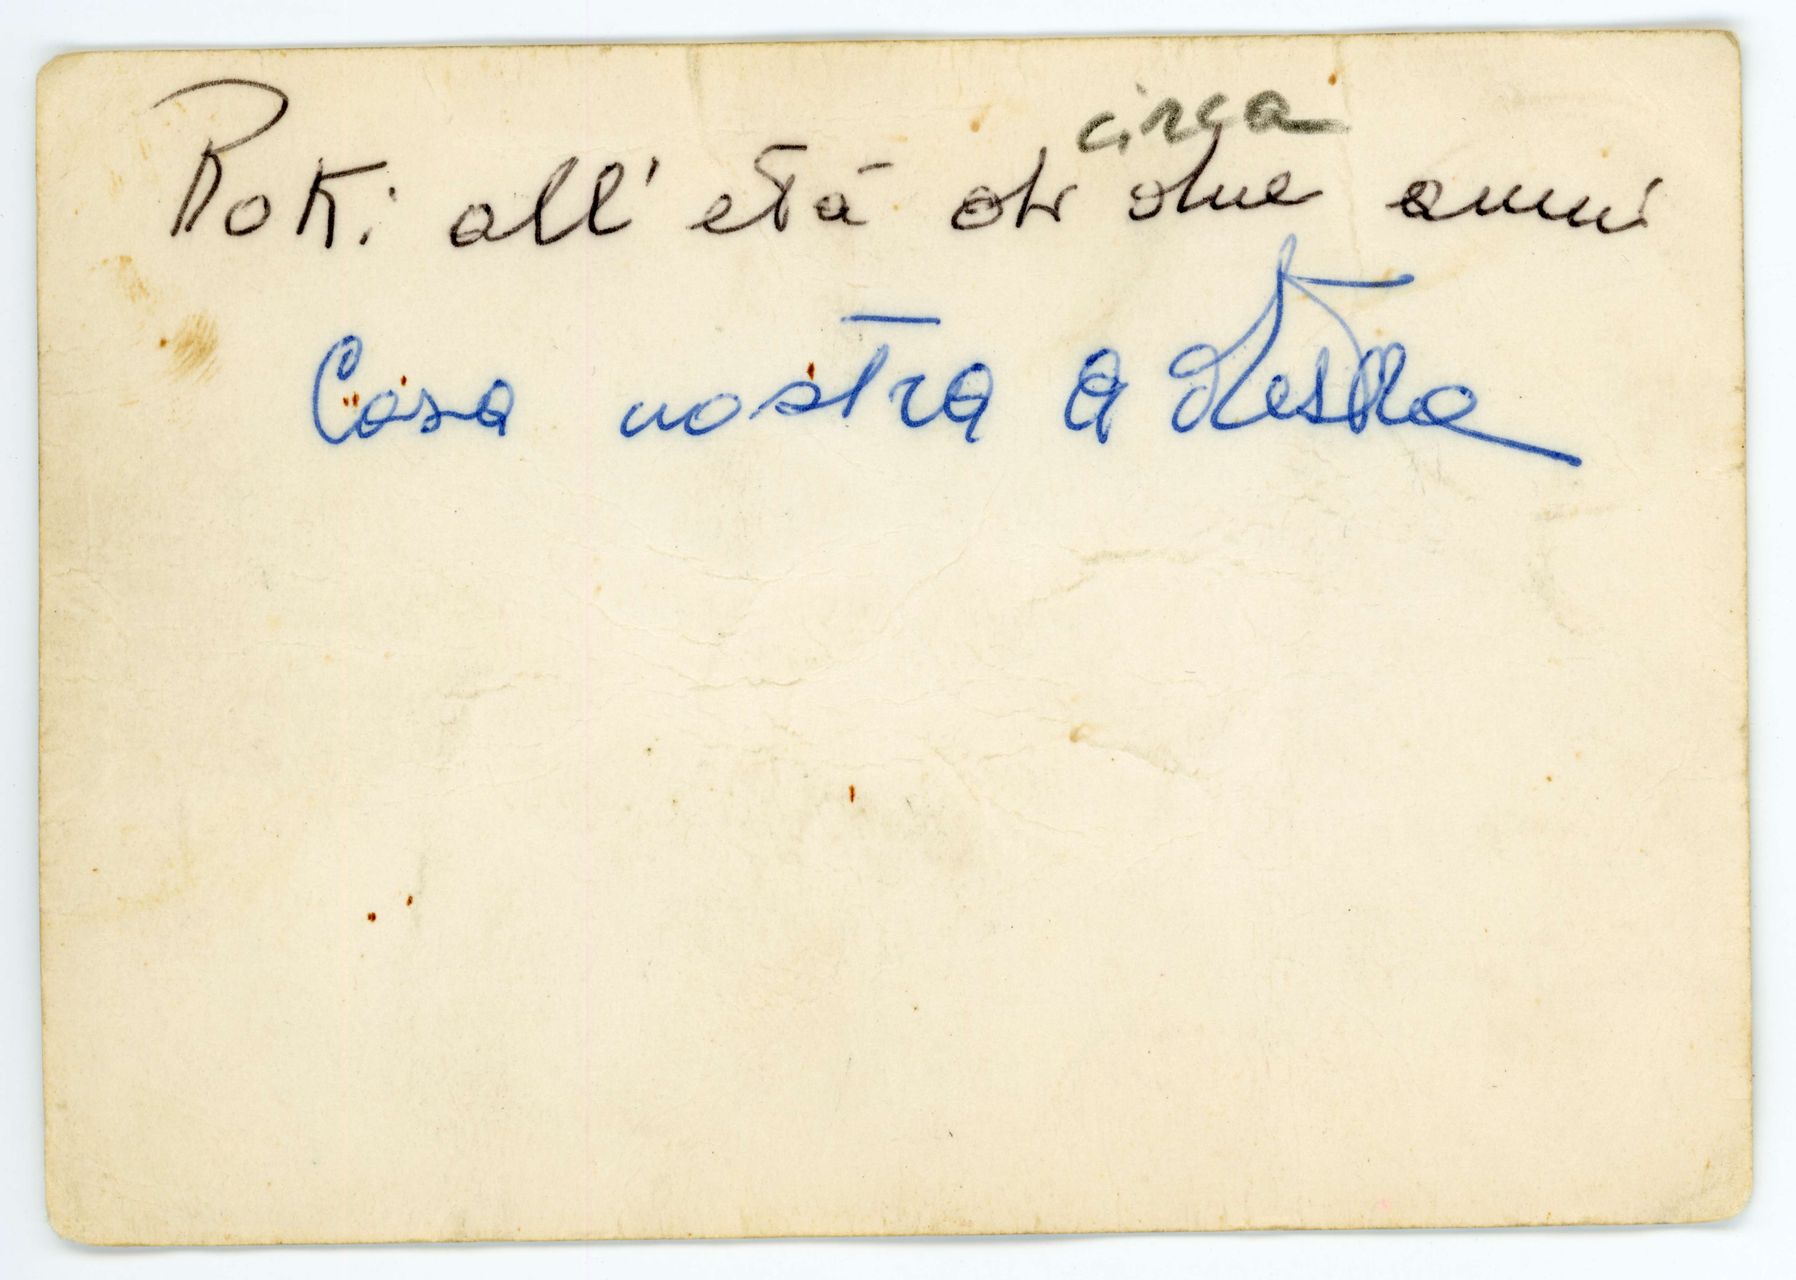 circa
Roki all'età di due anni
Casa nostra a